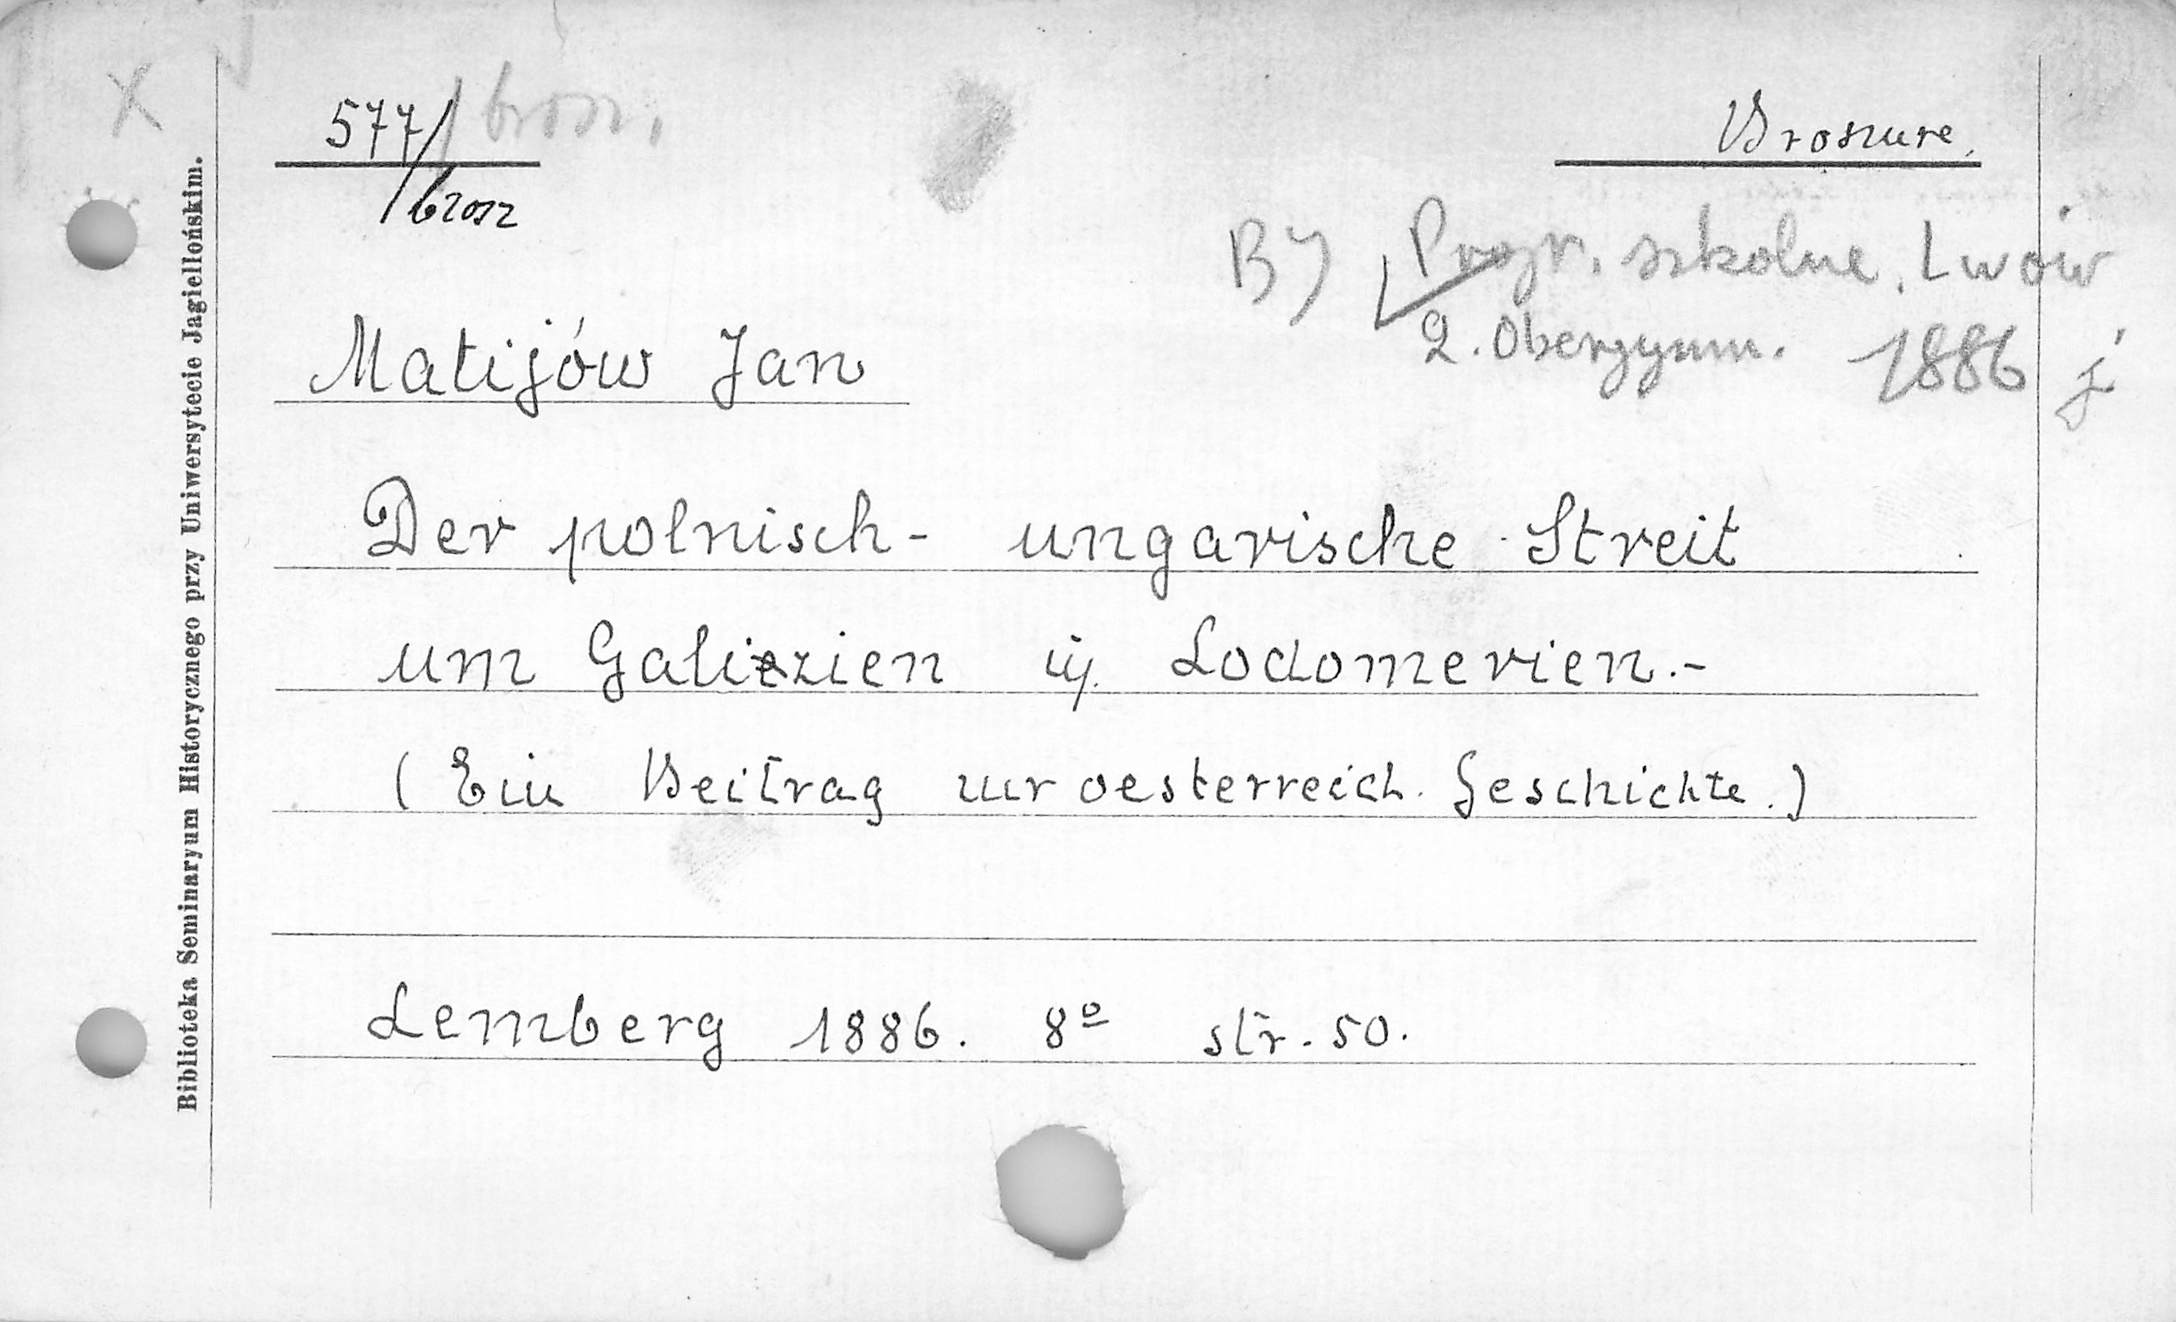 577/ brosz.
brosz
Broszure.
B) Progr. szkolne, Lwów
2. Obergymn. 1886 j
Matijów Jan
Der polnisch- ungarische Streit
um Galizien u. Lodomerien.-
(Ein Beitrag zur oesterreich. Geschichte.)
Lemberg 1886. 8º str. 50.
Biblioteka Seminaryum Historycznego przy Uniwersytecie Jagiellońskim.